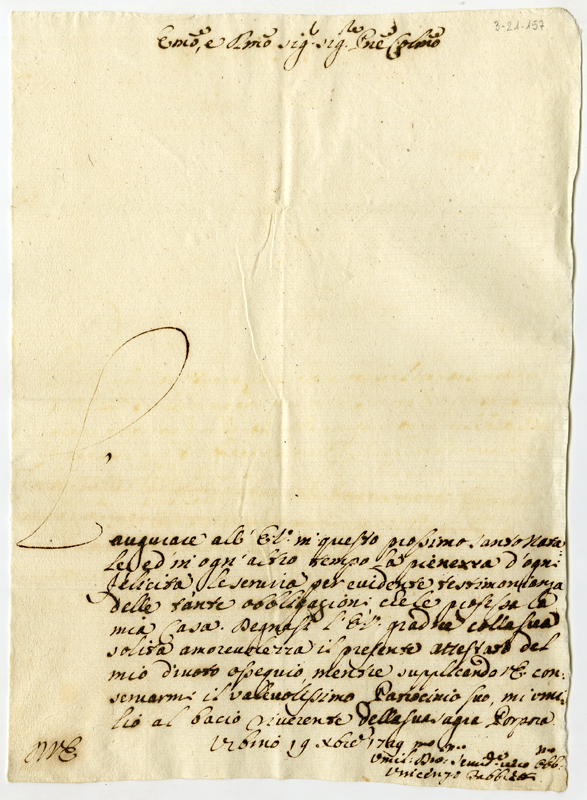 3-21-157
Emo, e Rmo Sig.r Sig.r Pne Colmo
L'augurare all' E.V. in questo prossimo Santo Nata
le, ed in ogn' altro tempo la pienezza d'ogni
felicità, le serva per evidente testimonianza
delle tante obbligazioni, che le professa la
mia Casa. Degnasi l'E.V. gradire colla sua
solita amorevolezza il presente attestato del
mio divoto ossequio, mentre supplicando V.E. con:
servarmi il vallevolissimo Patrocinio suo, mi umi:
lio al bacio riverente della sua sagra Porpora
Urbino 19 Xbre 1729
Umil.mo Dmo Servid.e vero Obb.mo
Vincenzo